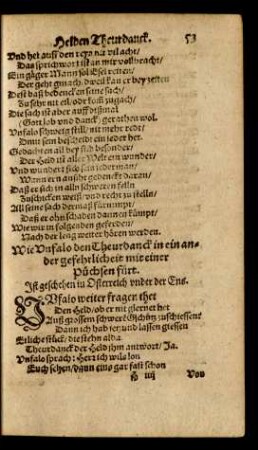 Helden Theurdanck. 53
Vnd het auff den reyn nit vil acht/
Das sprichwort ist an mir vollbracht/
Ein gůter Mann sol Esel reiten/
Der geht gmach, dweil kan er bey zeiten
Dest baß bedencken seine sach/
Zu sehr nit eil/ oder kom zu gach/
Die sach ist aber auff dißmal
(Gott lob vnd danck/ gerathen wol.
Vnfalo schweig still/ nit mehr redt/
Dmit sein bescheidt ein jeder het.
Gedacht on all bey sich besonder/
Der Held ist aller Welt ein wunder/
Vnd wundert sich sein jederman/
Wann er n ansihe gedenckt daran/
Daß er sich in alln schweren felln
Zuschicken weiß/ vnd recht zu stelln/
All seine sach dermaß fürnimpt/
Daß er ohn schaden dannen kümpt/
Wie wir in folgenden geferden/
Nach der leng weiter hören werden.
Wie Vnfalo den Theurdanck in ein an-
der gefehrlicheit mit einer
Püchsen fürt.
Ist geschehen in Osterreich vnder der Ens.
VNfalo weiter fragen thet
Den Held/ ob er nit glernet het
Auß grossem schwerē Gschütz zuschiessen?
Dann ich hab jetzund lassen giessen
Etliche stück/ die stehn alda
Theurdanck der Held jhm antwort/ Ja.
Vnfalo sprach: Herr ich wils lon
Euch sehen/ dann eins gar fast schon
Von